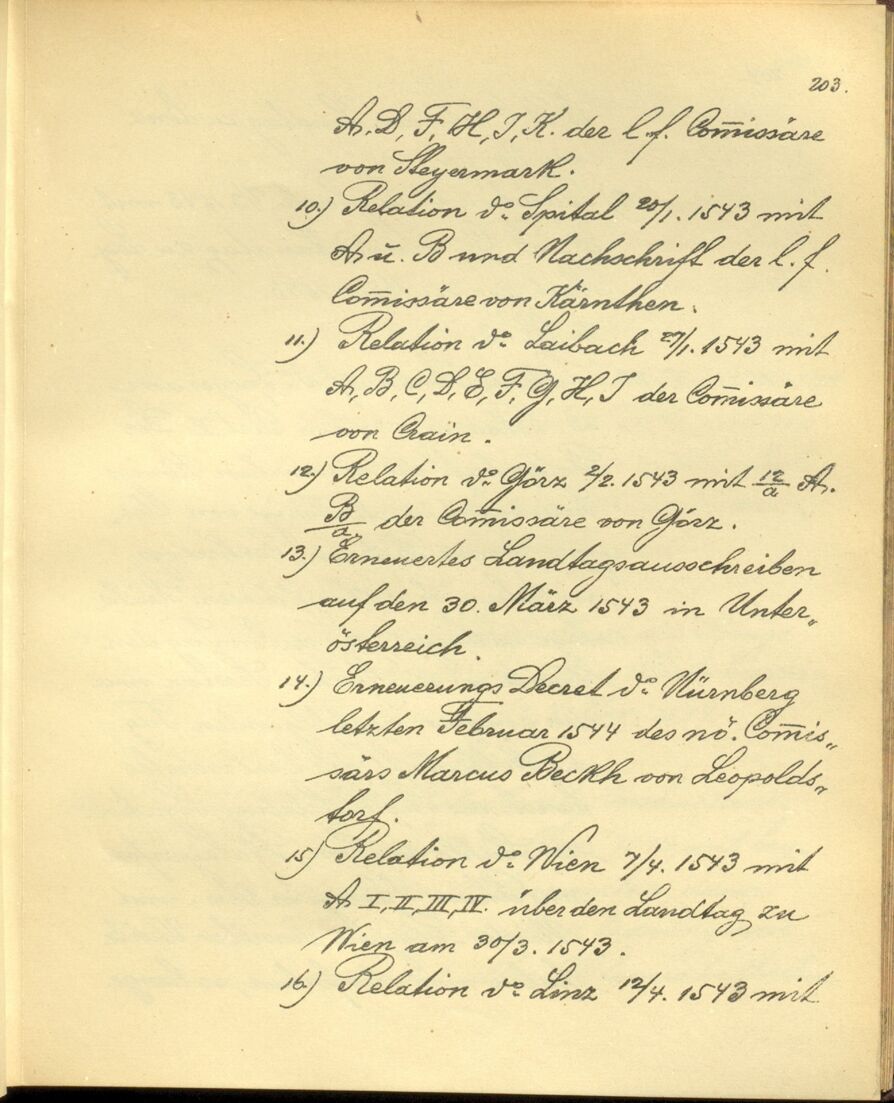 203.
A, D, F, H, I, K. der l. f. Com̄issäre
von Steyermark.
10.) Relation do Spital 20/1. 1543 mit
A u. B und Nachschrift der l. f.
Com̄issäre von Kärnthen.
11.) Relation do Laibach 27/1. 1543 mit
A, B, C, D, E, F, G, H, I der Com̄issäre
von Crain.
12.) Relation do Görz 2/2. 1543 mit 12/a A.
B/a der Com̄issäre von Görz.
13.) Erneuertes Landtagsausschreiben
auf den 30. März 1543 in Unter„
österreich.
14.) Erneuerungs Decret do Nürnberg
letzten Februar 1544 des nö. Com̄is„
särs Marcus Beckh von Leopolds„
torf.
15) Relation do Wien 7/4. 1543 mit
A I, II, III, IV. über den Landtag zu
Wien am 30/3. 1543.
16.) Relation do Linz 12/4. 1543 mit